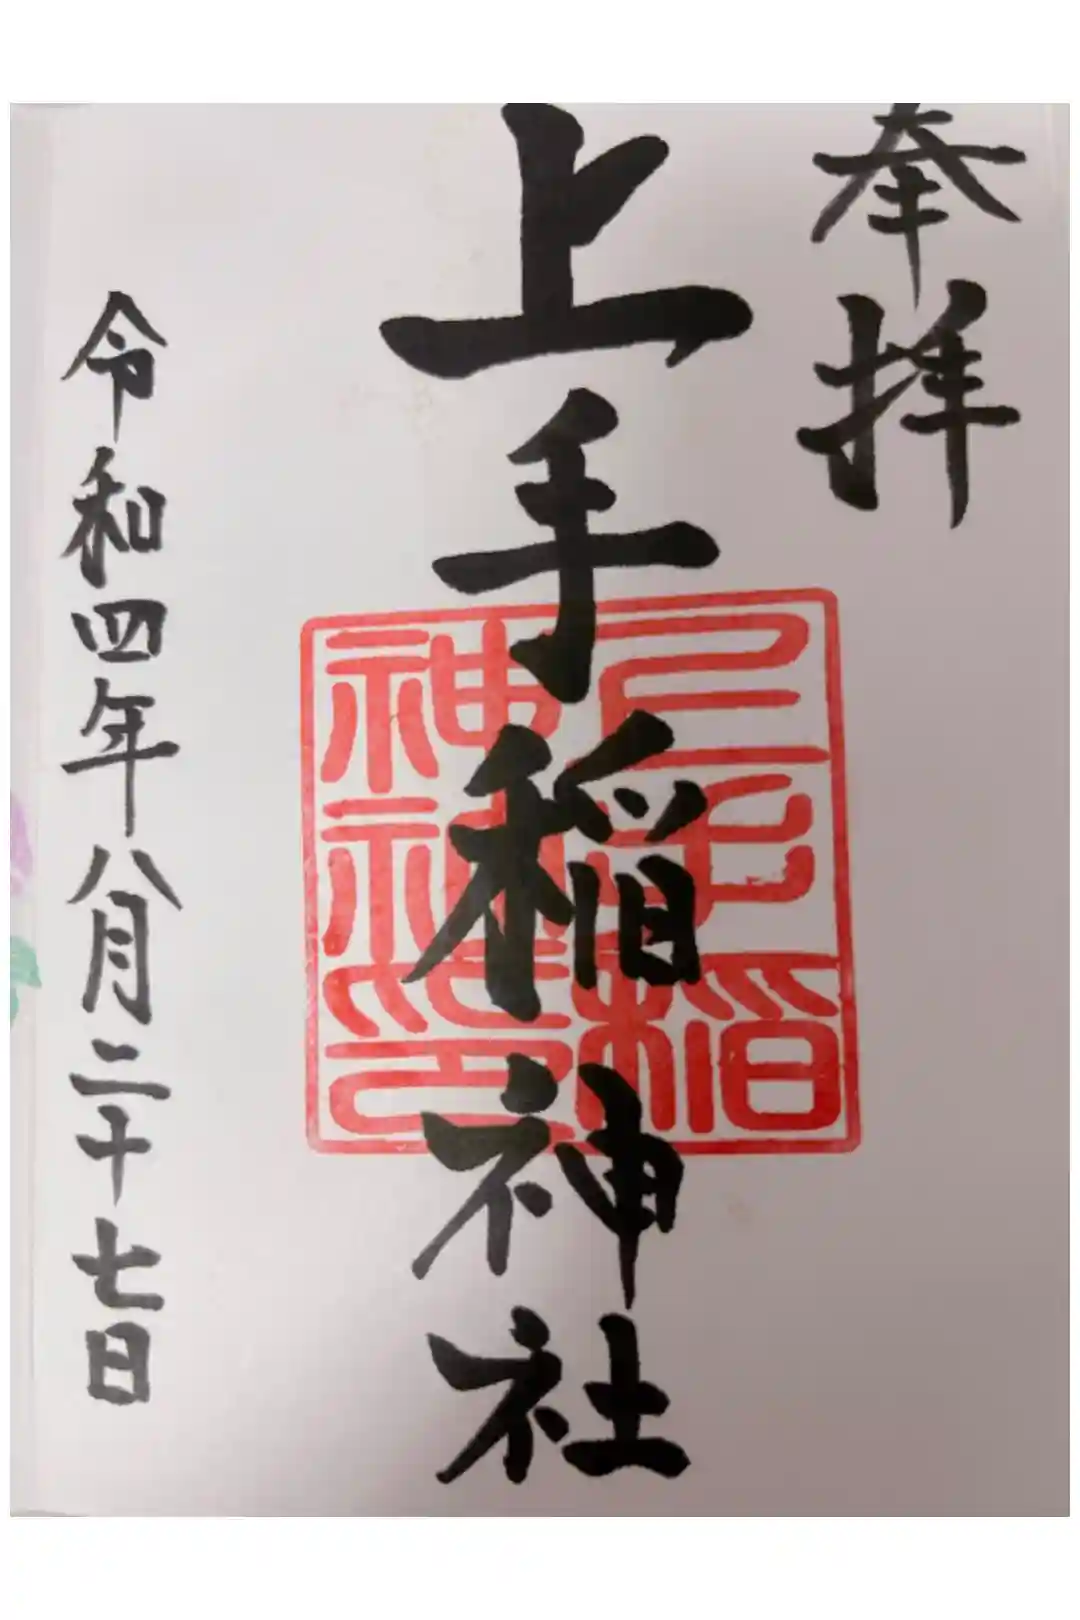 奉拝
上手稲神社
上手稲
神社印
令和四年八月二十七日